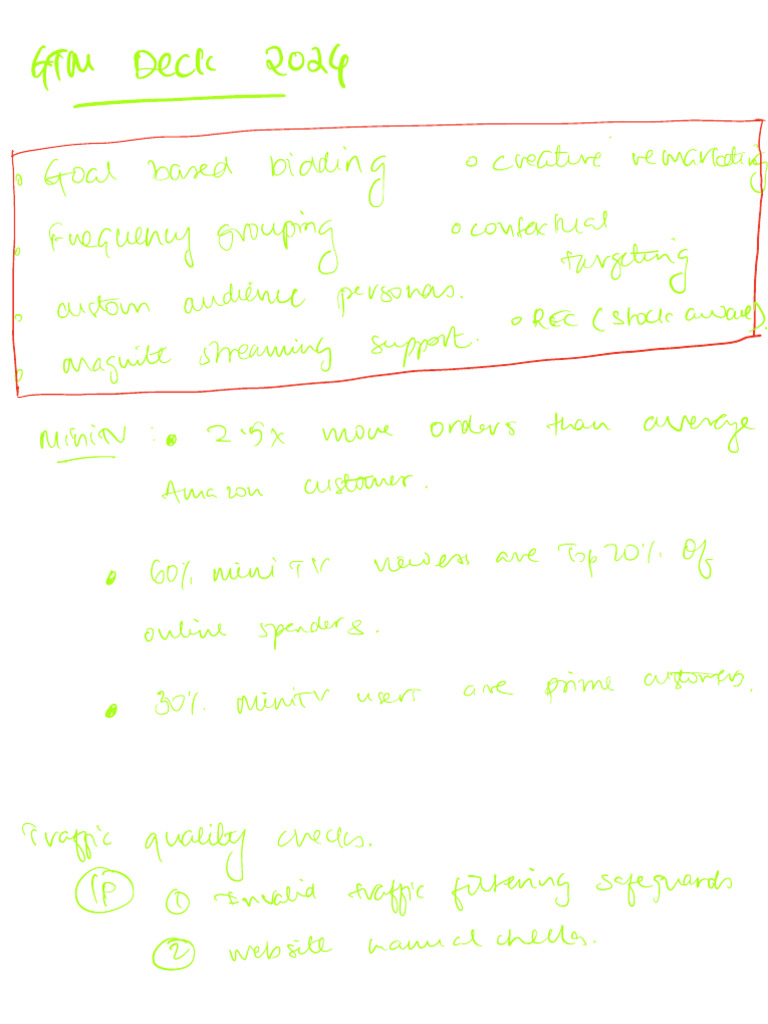 GTM Deck 2024
◦ Goal based bidding
◦ Frequency grouping
◦ custom audience personas.
◦ magnite streaming support.
◦ creative remarketing
◦ contextual
targeting
◦ REC (stock aware).
MiniTV : • 2.5x more orders than average
Amazon customer.
• 60% mini TV viewers are Top 20% of
online spenders.
• 30% miniTV users are prime customers.
Traffic quality checks.
1P ① Invalid traffic filtering safeguards
② website manual checks.